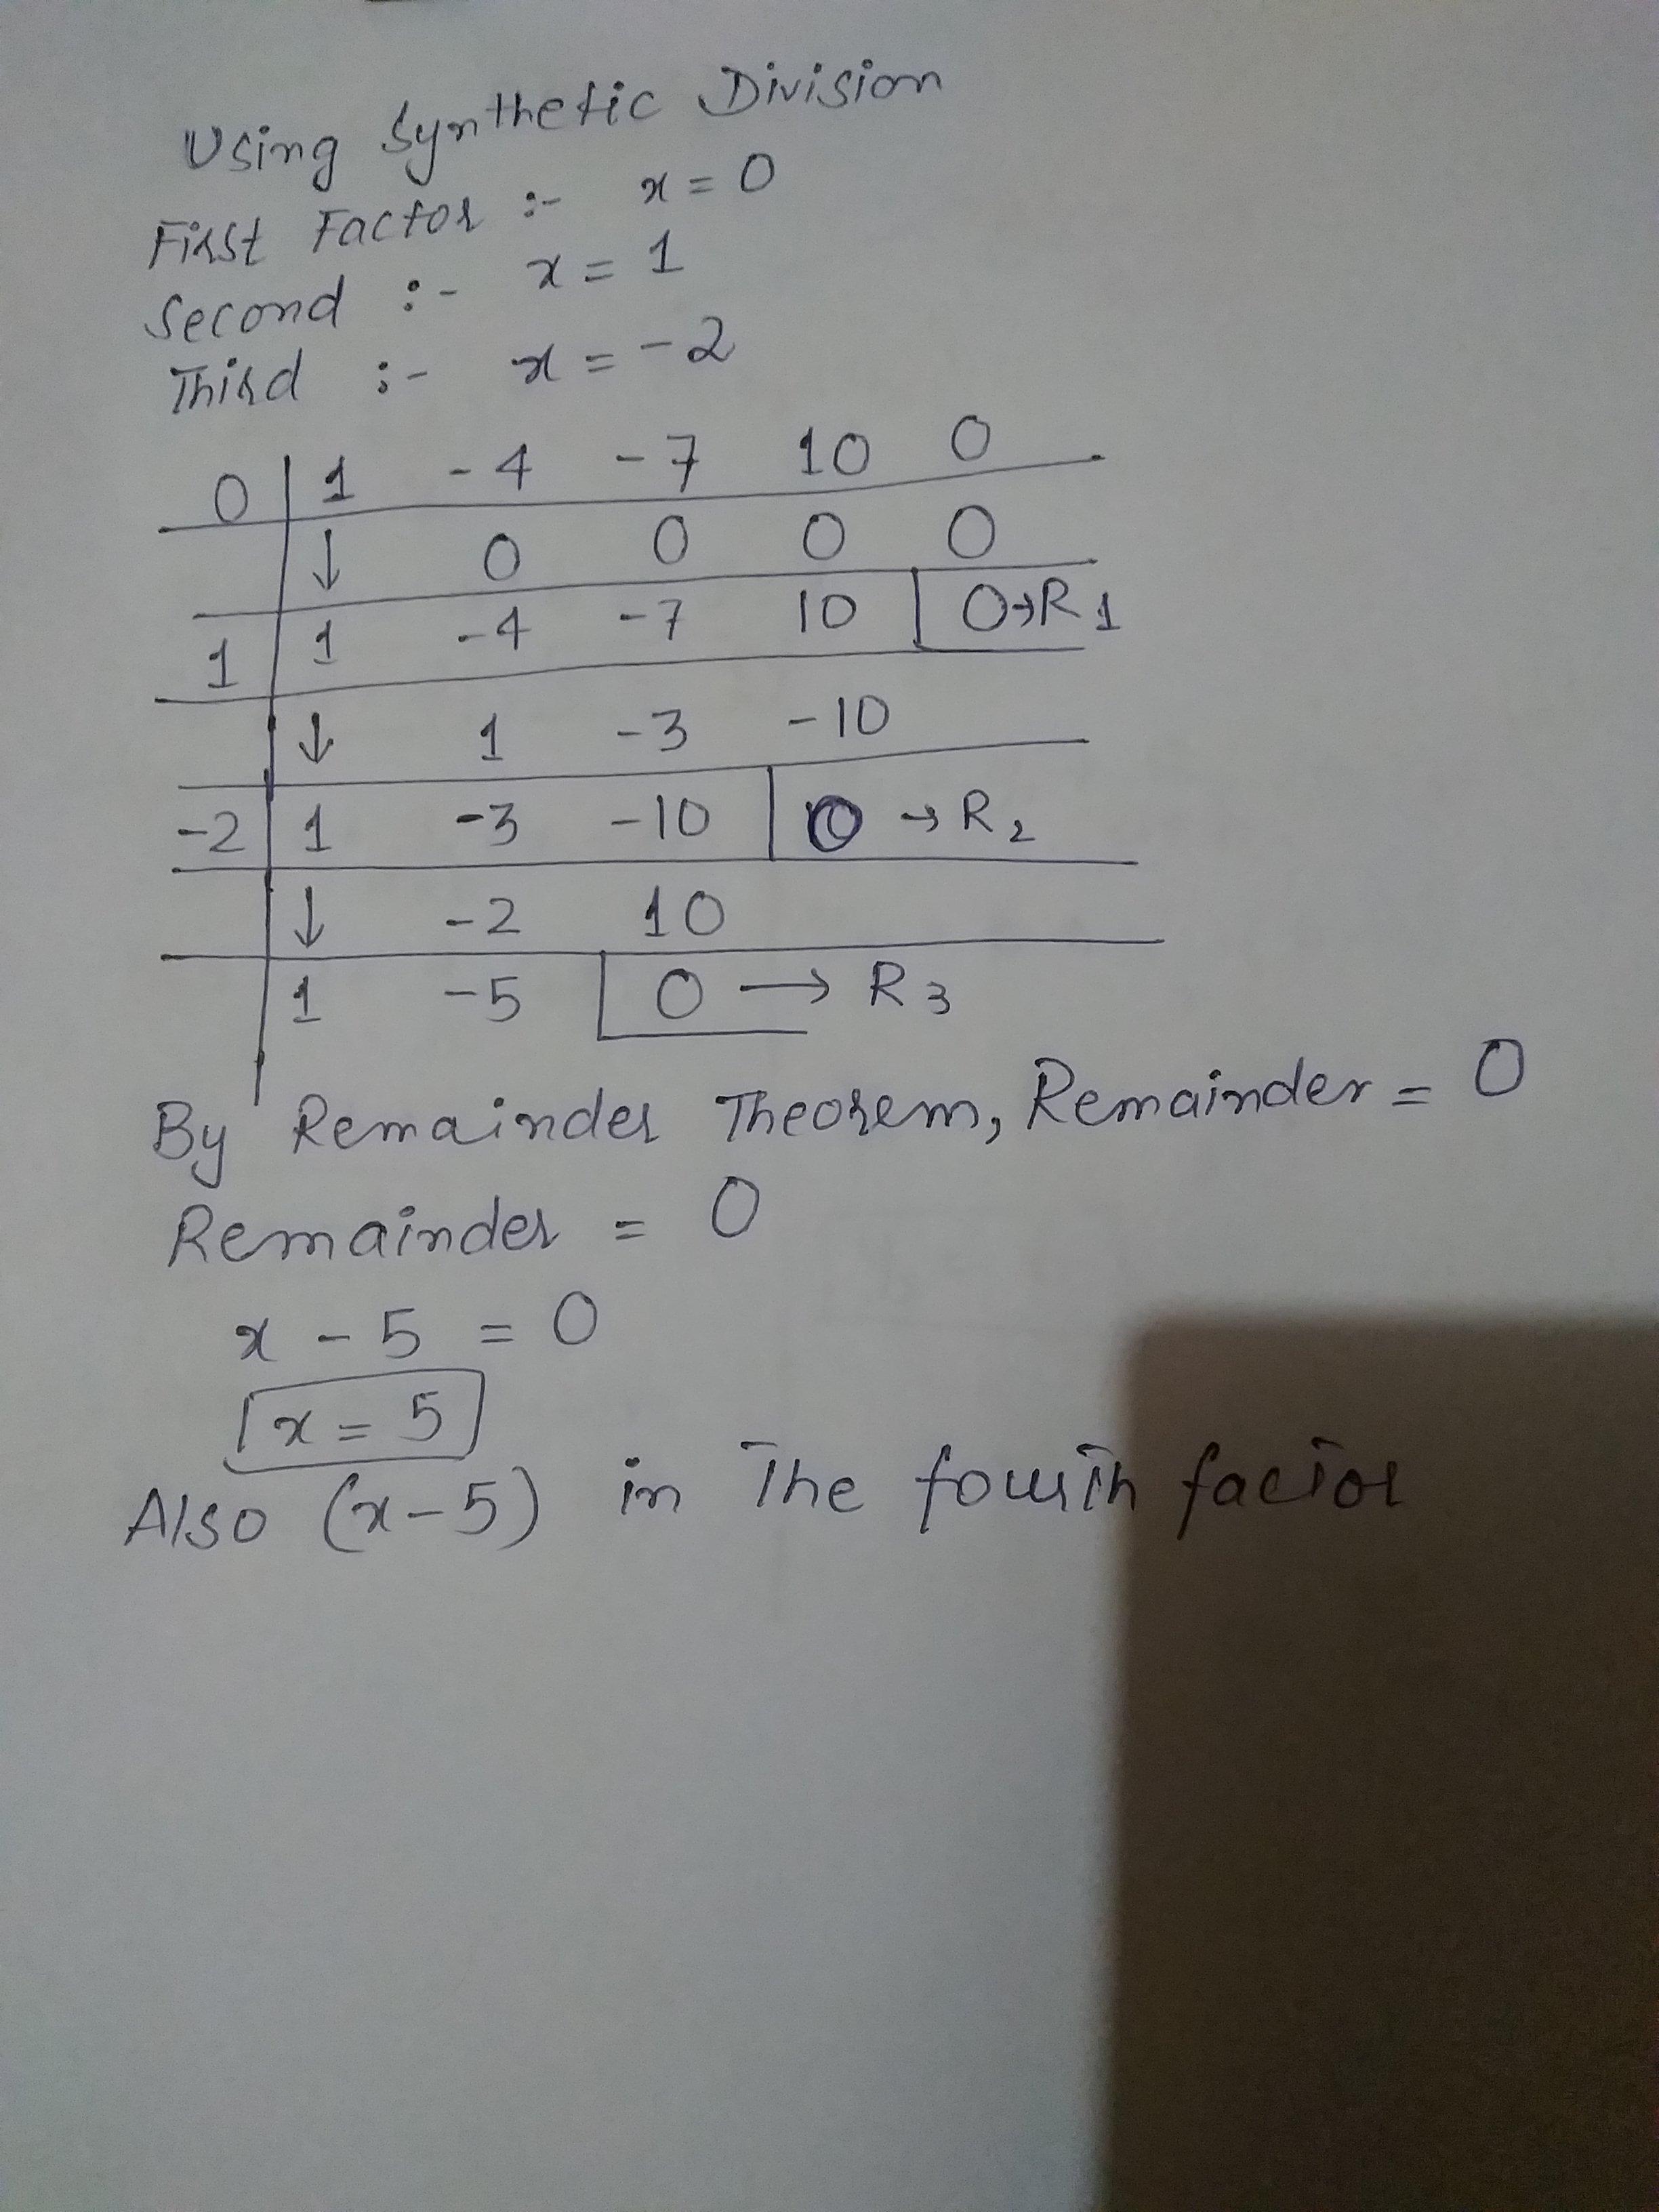 Using Synthetic Division
First Factor :- x = 0
Second :- x = 1
Third :- x = -2
0 | 1 -4 -7 10 0
↓ 0 0 0 0
1 | 1 -4 -7 10 | 0→R1
↓ 1 -3 -10
-2 | 1 -3 -10 | 0 → R2
↓ -2 10
1 -5 | 0 → R3
By Remainder Theorem, Remainder = 0
Remainder = 0
x - 5 = 0
x = 5
Also (x-5) in The fourth factor